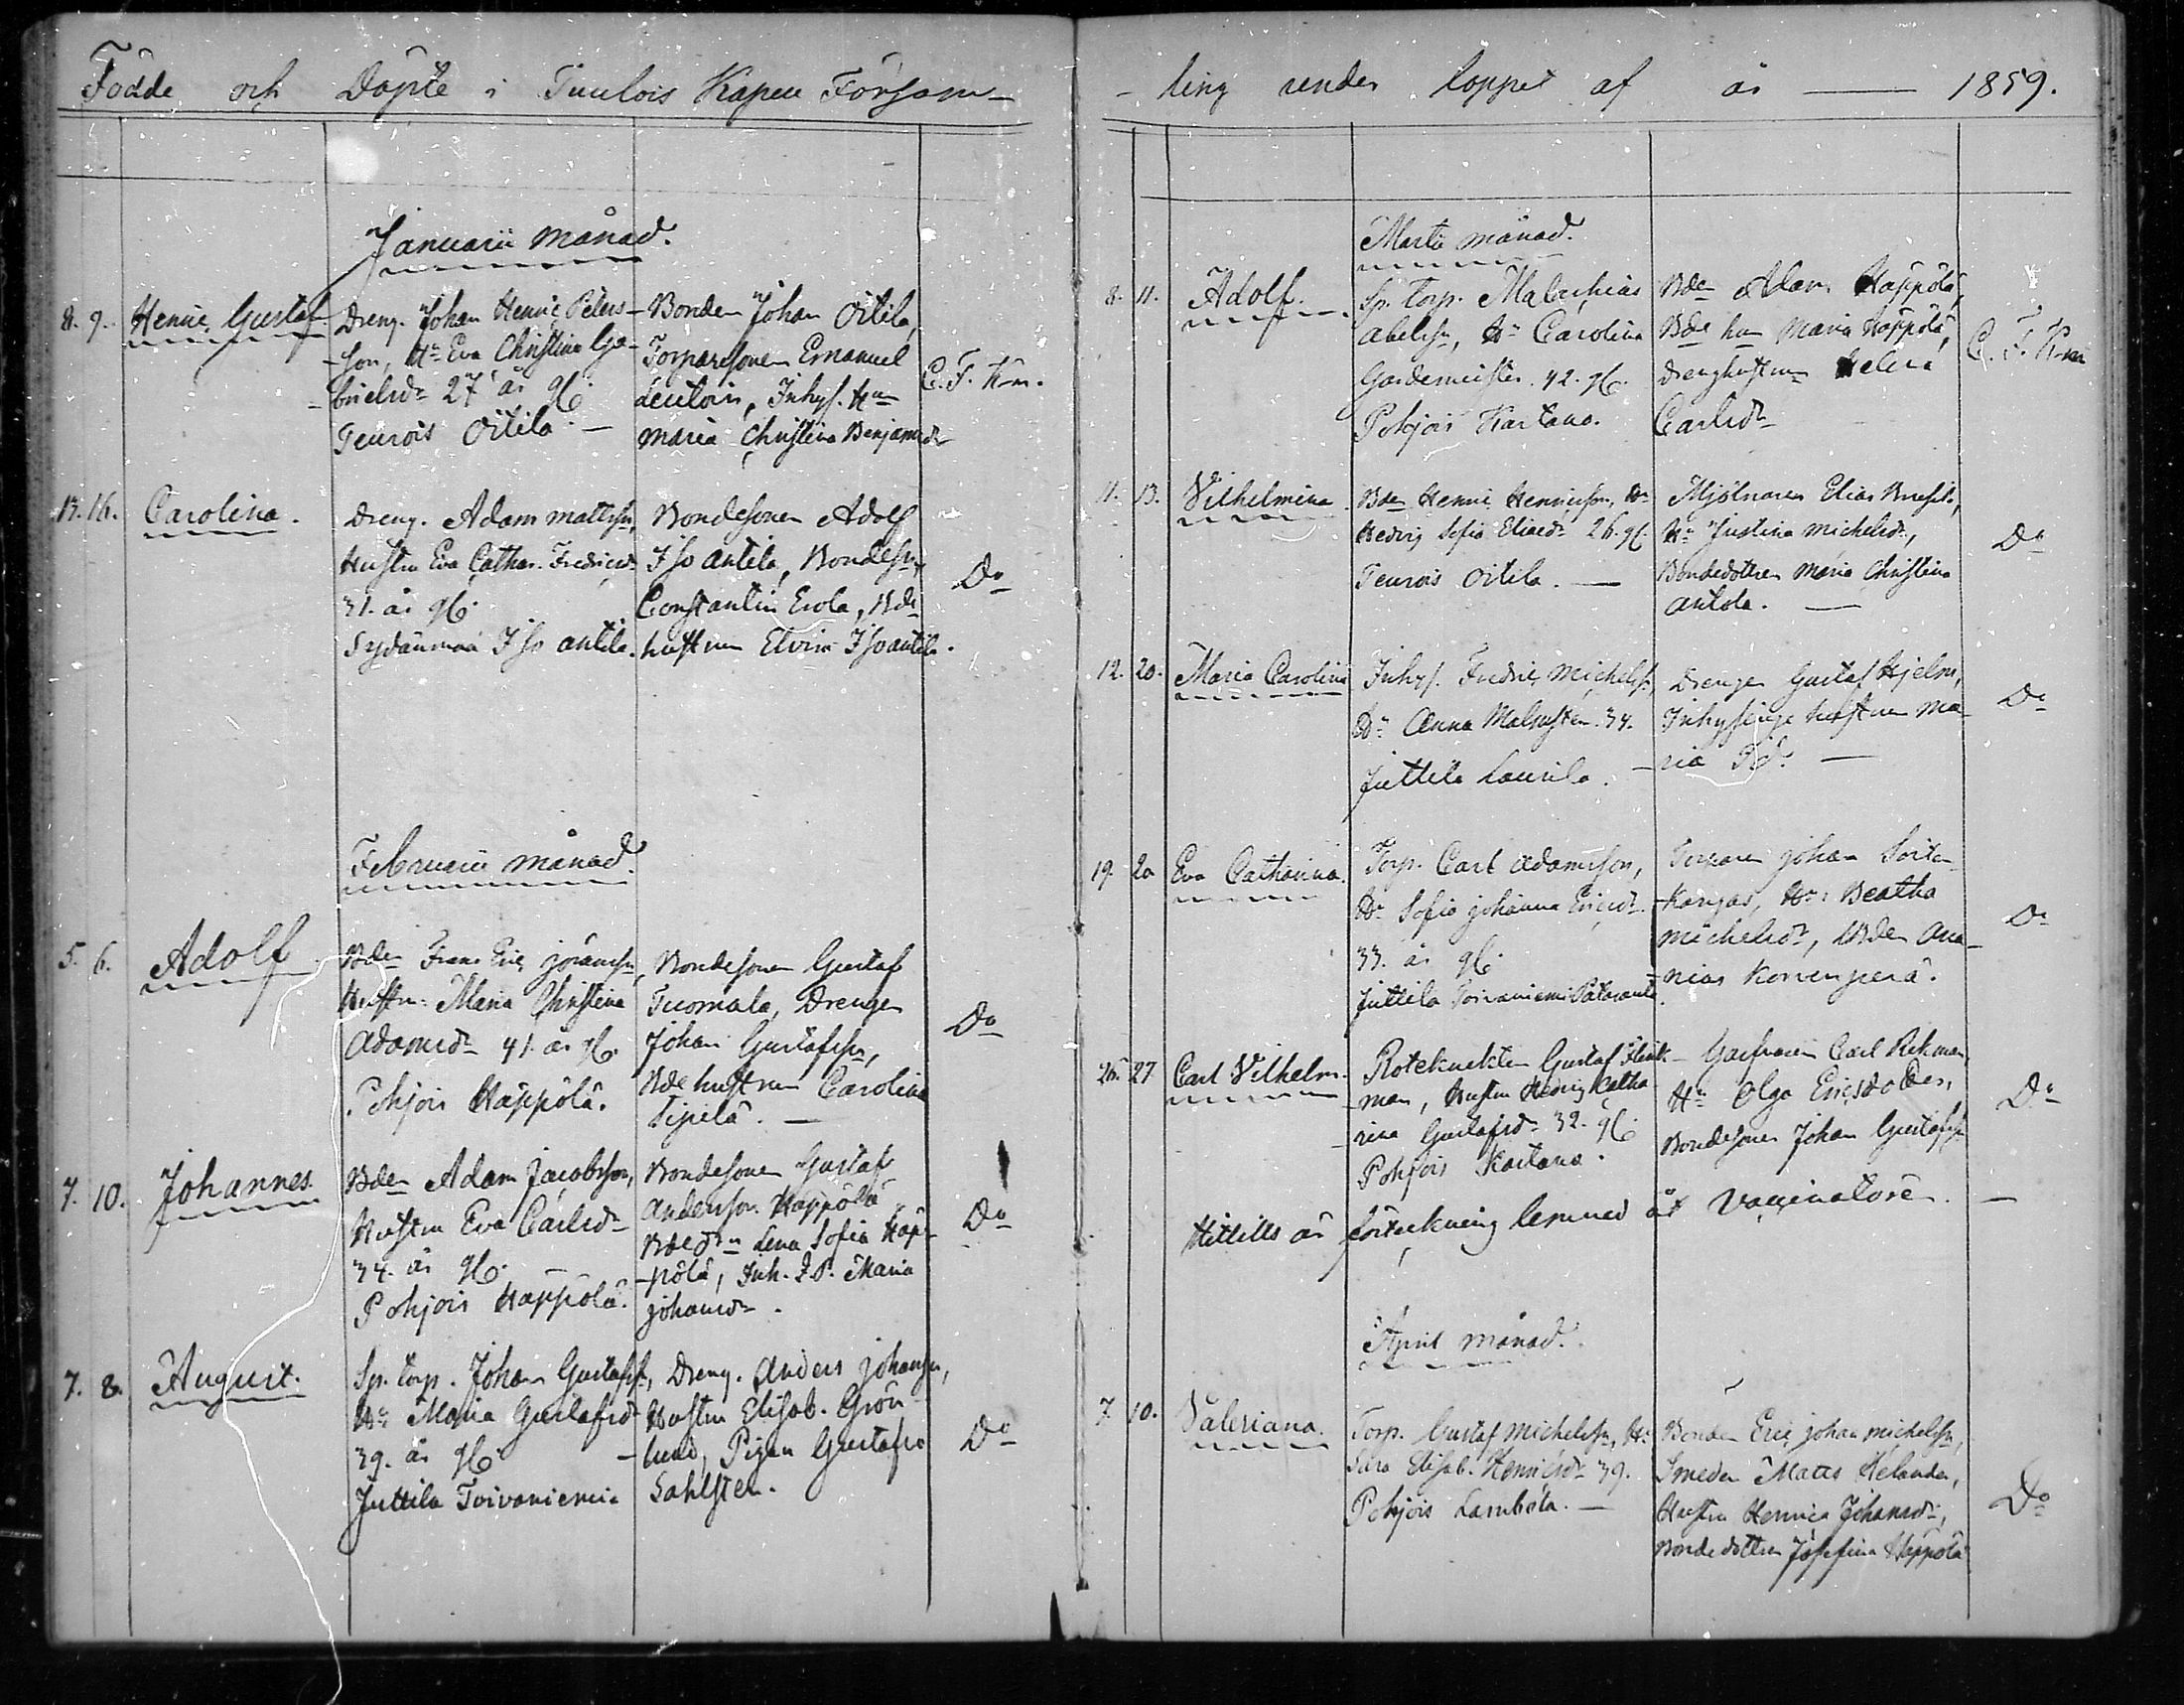 Födde och Döpte i Tuulois Kapell Försam-
Januarii månad.
8. 9. Henric Gustaf.
Dreng. Johan Henric Peters-
-son, Hu Eva Christina Ga-
-brielsdr 27 år gl.
Teurois Oitila. —
Bonden Johan Oitila,
Torparesonen Emanuel
Inhys. Hun
Maria Christina Benjamsdr
C. F. K-m.
13. 16. Carolina.
Dreng. Adam Mattsson,
Hustru Eva Cathar. Fredricsdr
31. år gl.
Sydänmaa Iso antila.
Bondesonen Adolf
Iso Antila, Bondesn
Constantin Erola, Bde
hustrun Elvira Iso antila.
Do
Februarii månad.
5. 6. Adolf
Bden Frans Eric Göransson,
Hustrun Maria Christina
Adamsdr 41. år gl.
Pohjois Häppölä.
Bondesonen Gustaf
Tuomala, Drengen
Johan Gustafsson,
Bde hustrun Carolina
Sipilä. —
Do
7. 10. Johannes.
Bden Adam Jacobsson,
Hustru Eva Carlsdr
34. år gl. —
Pohjois Häppölä.
Bondesonen Gustaf
Andersson Häppölä
Lena Sofia Häp-
-pölä, Inh. Maria
Johansdr.
Do
7. 8. August.
Sp. torp. Johan Gustafss,
Hu Maria Gustafsdr
39. år gl.
Juttila Toivaniemi
Dreng. Anders Johansson,
Hustru Elisab. Grön-
-lund, Pigan Gustafva
Sahlsten.
Do
-ling under loppet af år — 1859.
Martii månad.
8. 11. Adolf.
Sp. Torp. Malachias
Abelssn, Hu Carolina
Gardemeister. 42. gl.
Pohjois Kartano.
Bden Adam Häppölä,
Bde hun Maria Häppölä,
Drenghustrun Helena
Carlsdr
C. F. K-m
11. 13. Vilhelmina.
Bden Henric Henricsson, Hu
Hedvig Sofia Eliaedr 26. gl.
Teurois Oitila. —
Mjölnaren Elias
Hu Justina Michelsdr,
Bondedottren Maria Christina
Antola. —
Do
12. 20. Maria Carolina
Inhys. Fredric Michelss,
Hu Anna Malmsten. 34.
Juttila Laurila. —
Drengen Gustaf Hjelm,
Inhysinge hustrun Ma-
-ria —
Do
19. 20 Eva Catharina.
Torp. Carl Adamsson,
Hu Sofia Johanna Ericsdr
33. år gl.
Juttila Toivaniemi
Torparen Johan
-kangas, Hu Beatha
Michelsdr, Bden Ana-
-nias Korvenperä.
Do
26. 27 Carl Vilhelm.
Rotekarlen Gustaf Flink-
-man, Hustru Hedvig Catha
-rina Gustafsdr 32. gl.
Pohjois Kartano.
Garfvaren Carl Rekman,
Hu Olga Ericsdotter,
Bondesonen Johan Gustafssn
Do
Hittills är förteckning lemnad åt Vaccinatoren. —
April månad.
7. 10. Valeriana.
Torp. Gustaf Michelssn, Hu
Sara Elisab. Henricsdr 39.
Pohjois Lambola. —
Bonden Eric Johan Michelssn,
Smeden Matts Helander,
Hustru Henrica Johansdr,
Bondedottren Josefina Häppölä
Do